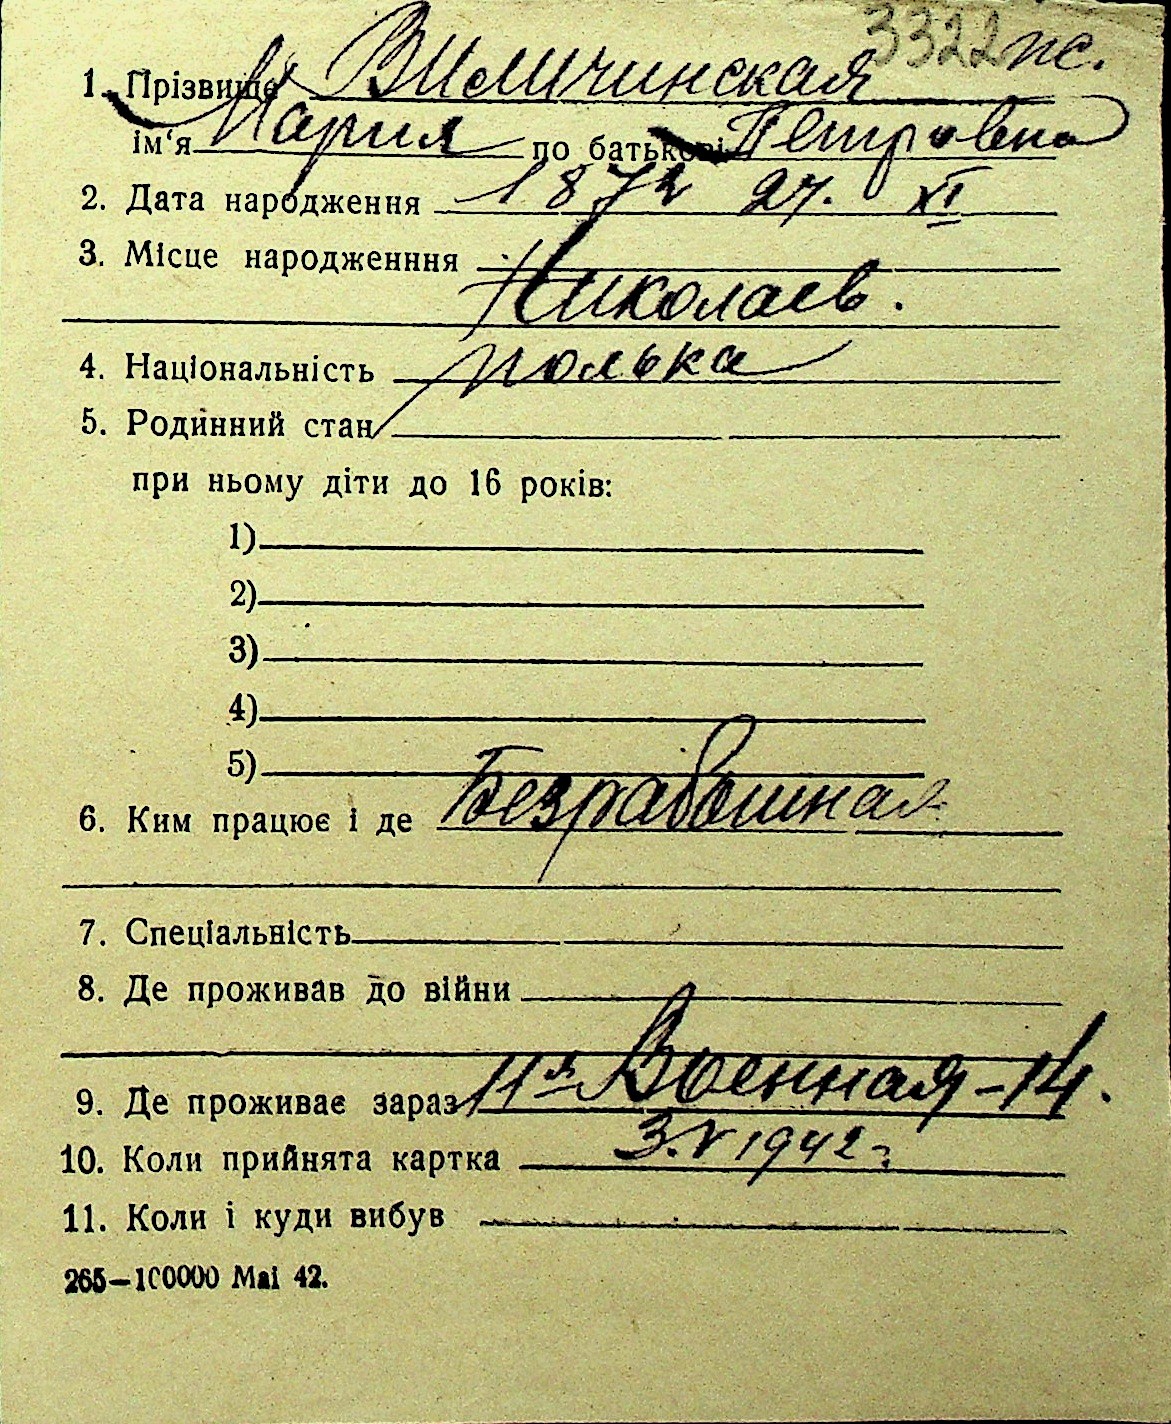 3322 ж.
1. Прізвище Вимичинская
ім‘я Мария по батькові Петровна
2. Дата народження 1872 27. XI
3. Місце народженння
Николаев.
4. Національність полька
5. Родинний стан
при ньому діти до 16 років:
1)
2)
3)
4)
5)
6. Ким працює і де Безработная
7. Спеціальність
8. Де проживав до війни
9. Де проживає зараз 11я Военная-14.
10. Коли прийнята картка 3.V 1942 г.
11. Коли і куди вибув
265—100000 Маі 42.